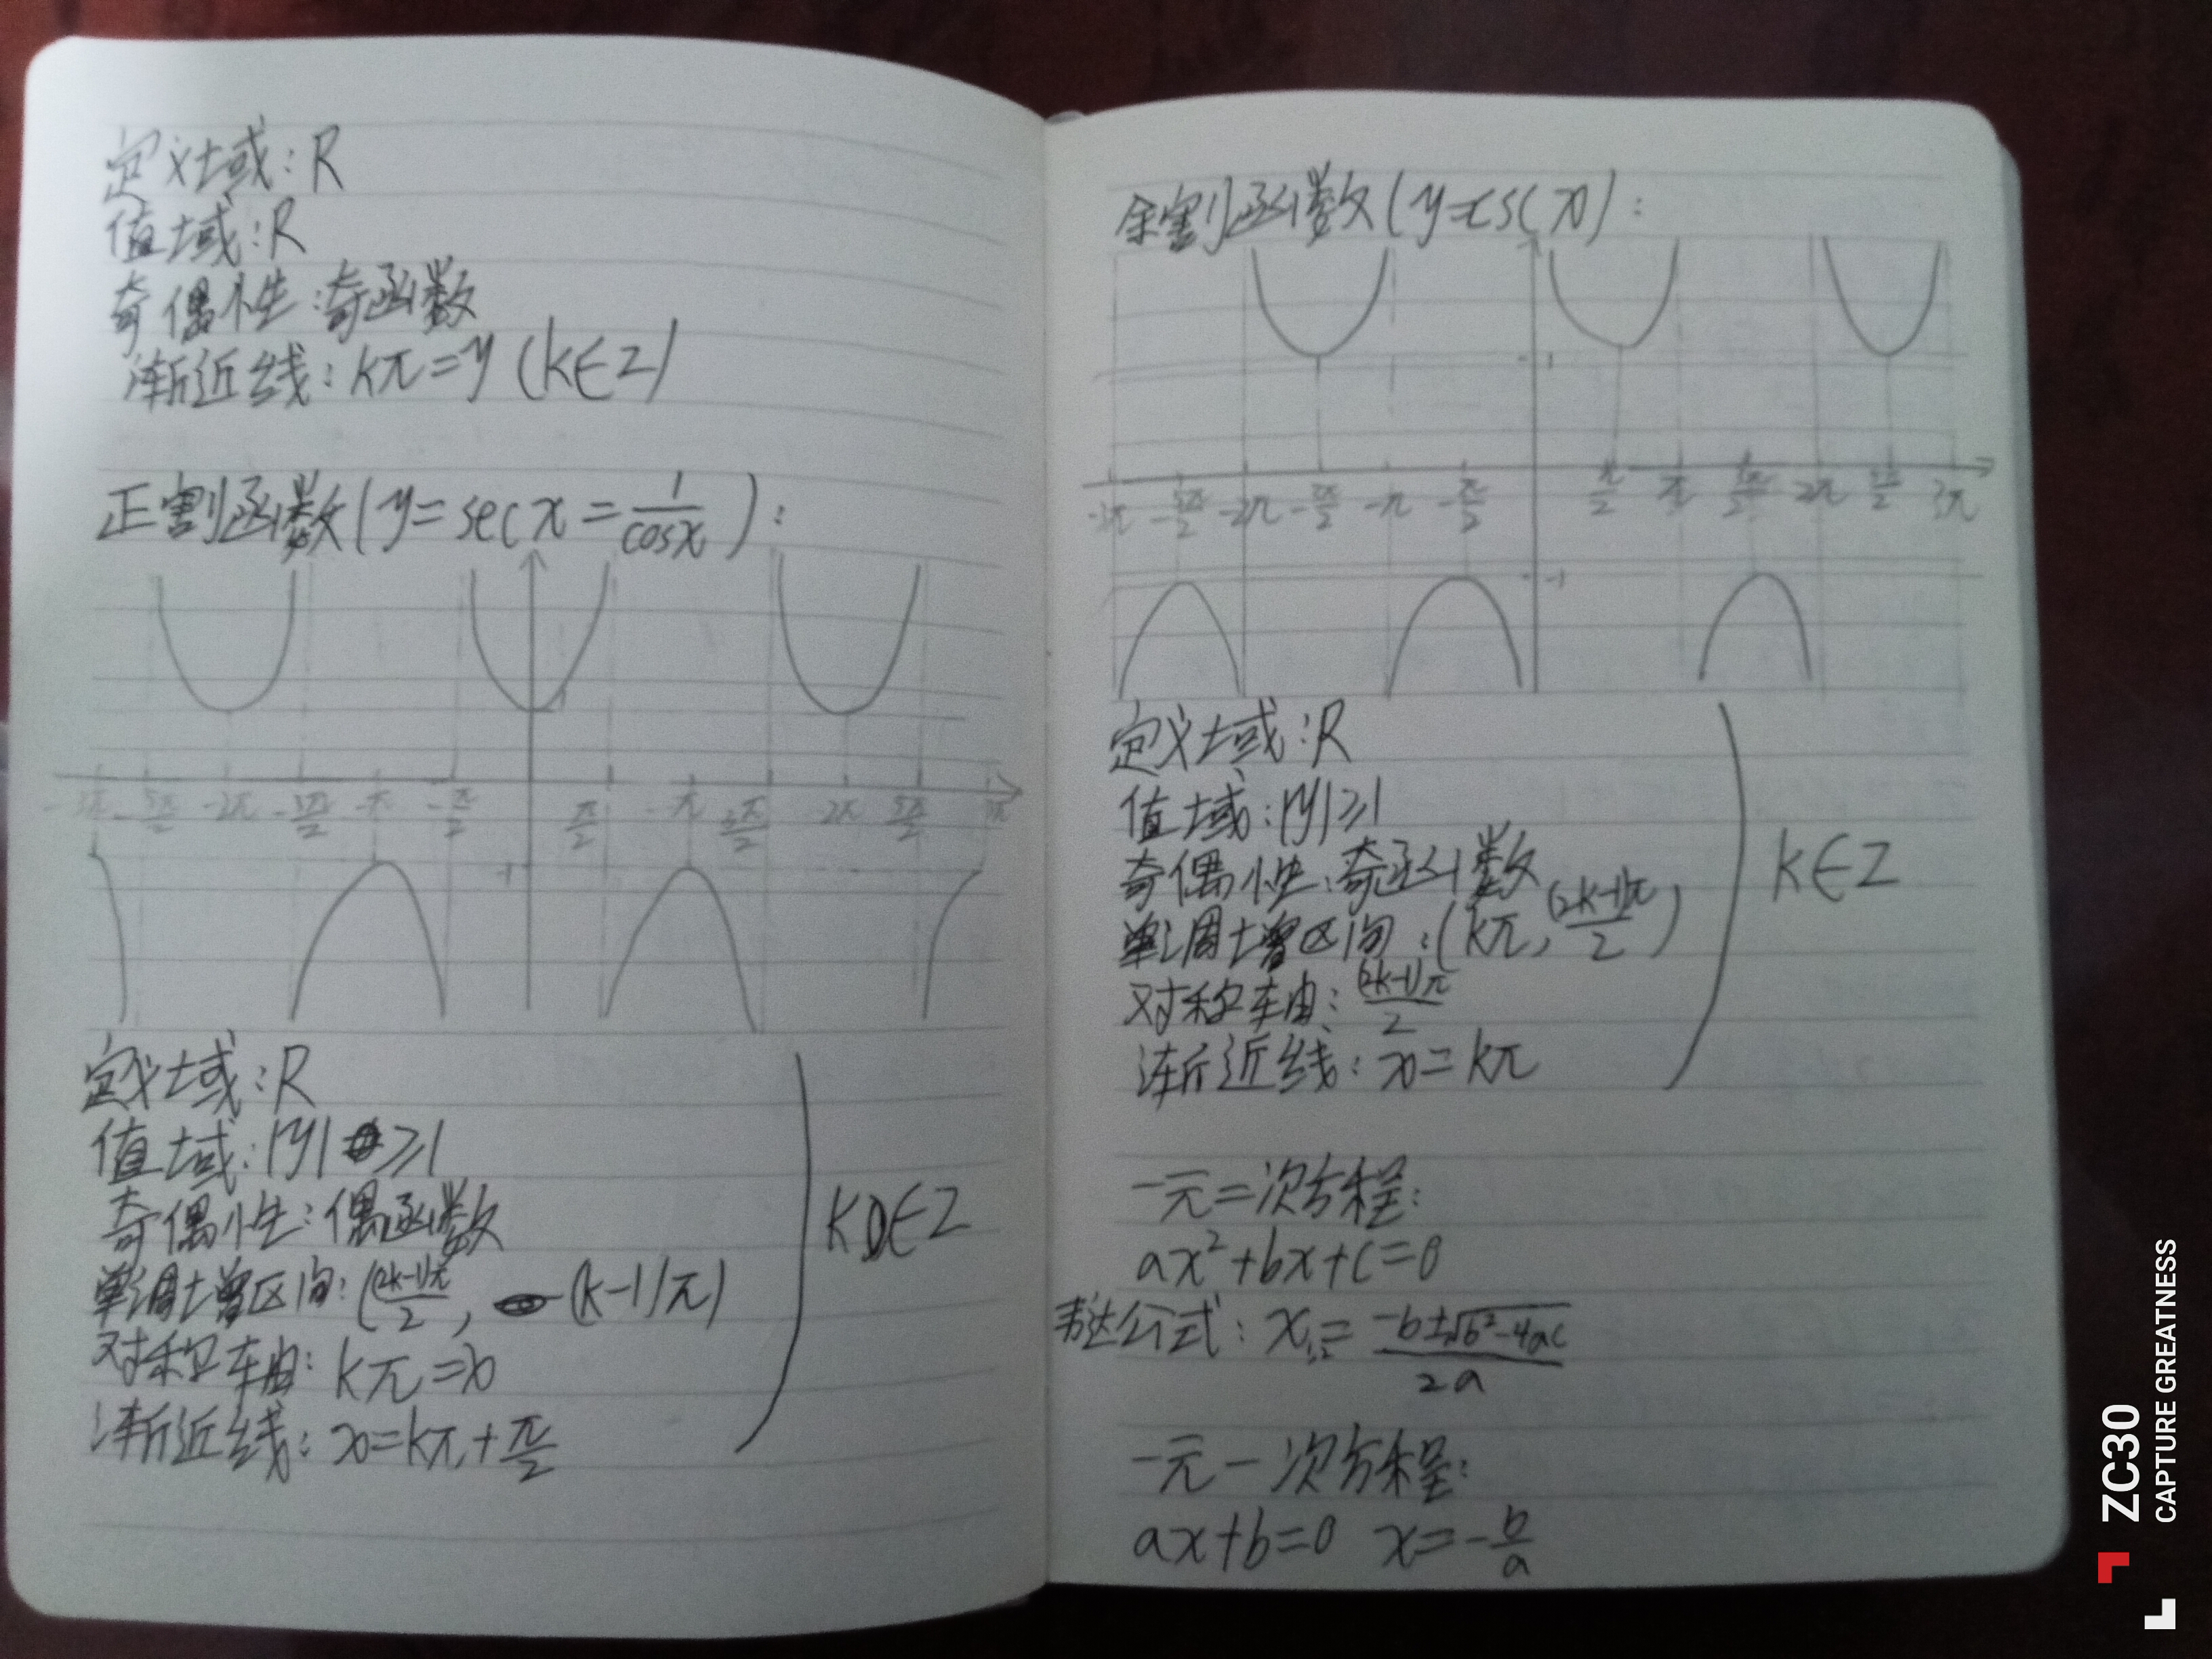 定义域：R
值域：R
奇偶性：奇函数
渐近线：kπ=y (k∈Z)
正割函数(y=sec x=1/cosx)：
-3π -5π/2 -2π -3π/2 -π -π/2 π/2 -π 3π/2 -2π 5π/2 3π
-1
定义域：R
值域：|y|≥1
奇偶性：偶函数
单调增区间：((2k-1)π/2, (k-1)π)
对称轴：kπ=x
渐近线：x=kπ+π/2
k∈Z
余割函数(y=csc x)：
1
-3π -5π/2 -2π -3π/2 -π -π/2 π/2 π 3π/2 2π 5π/2 3π
-1
定义域：R
值域：|y|≥1
奇偶性：奇函数
单调增区间：(kπ, (2k-1)π/2)
对称轴：(2k-1)π/2
渐近线：x=kπ
k∈Z
一元二次方程：
ax²+bx+c=0
表达公式：x₁,₂=(-b±√(b²-4ac))/2a
一元一次方程：
ax+b=0 x=-b/a
ZC30
CAPTURE GREATNESS